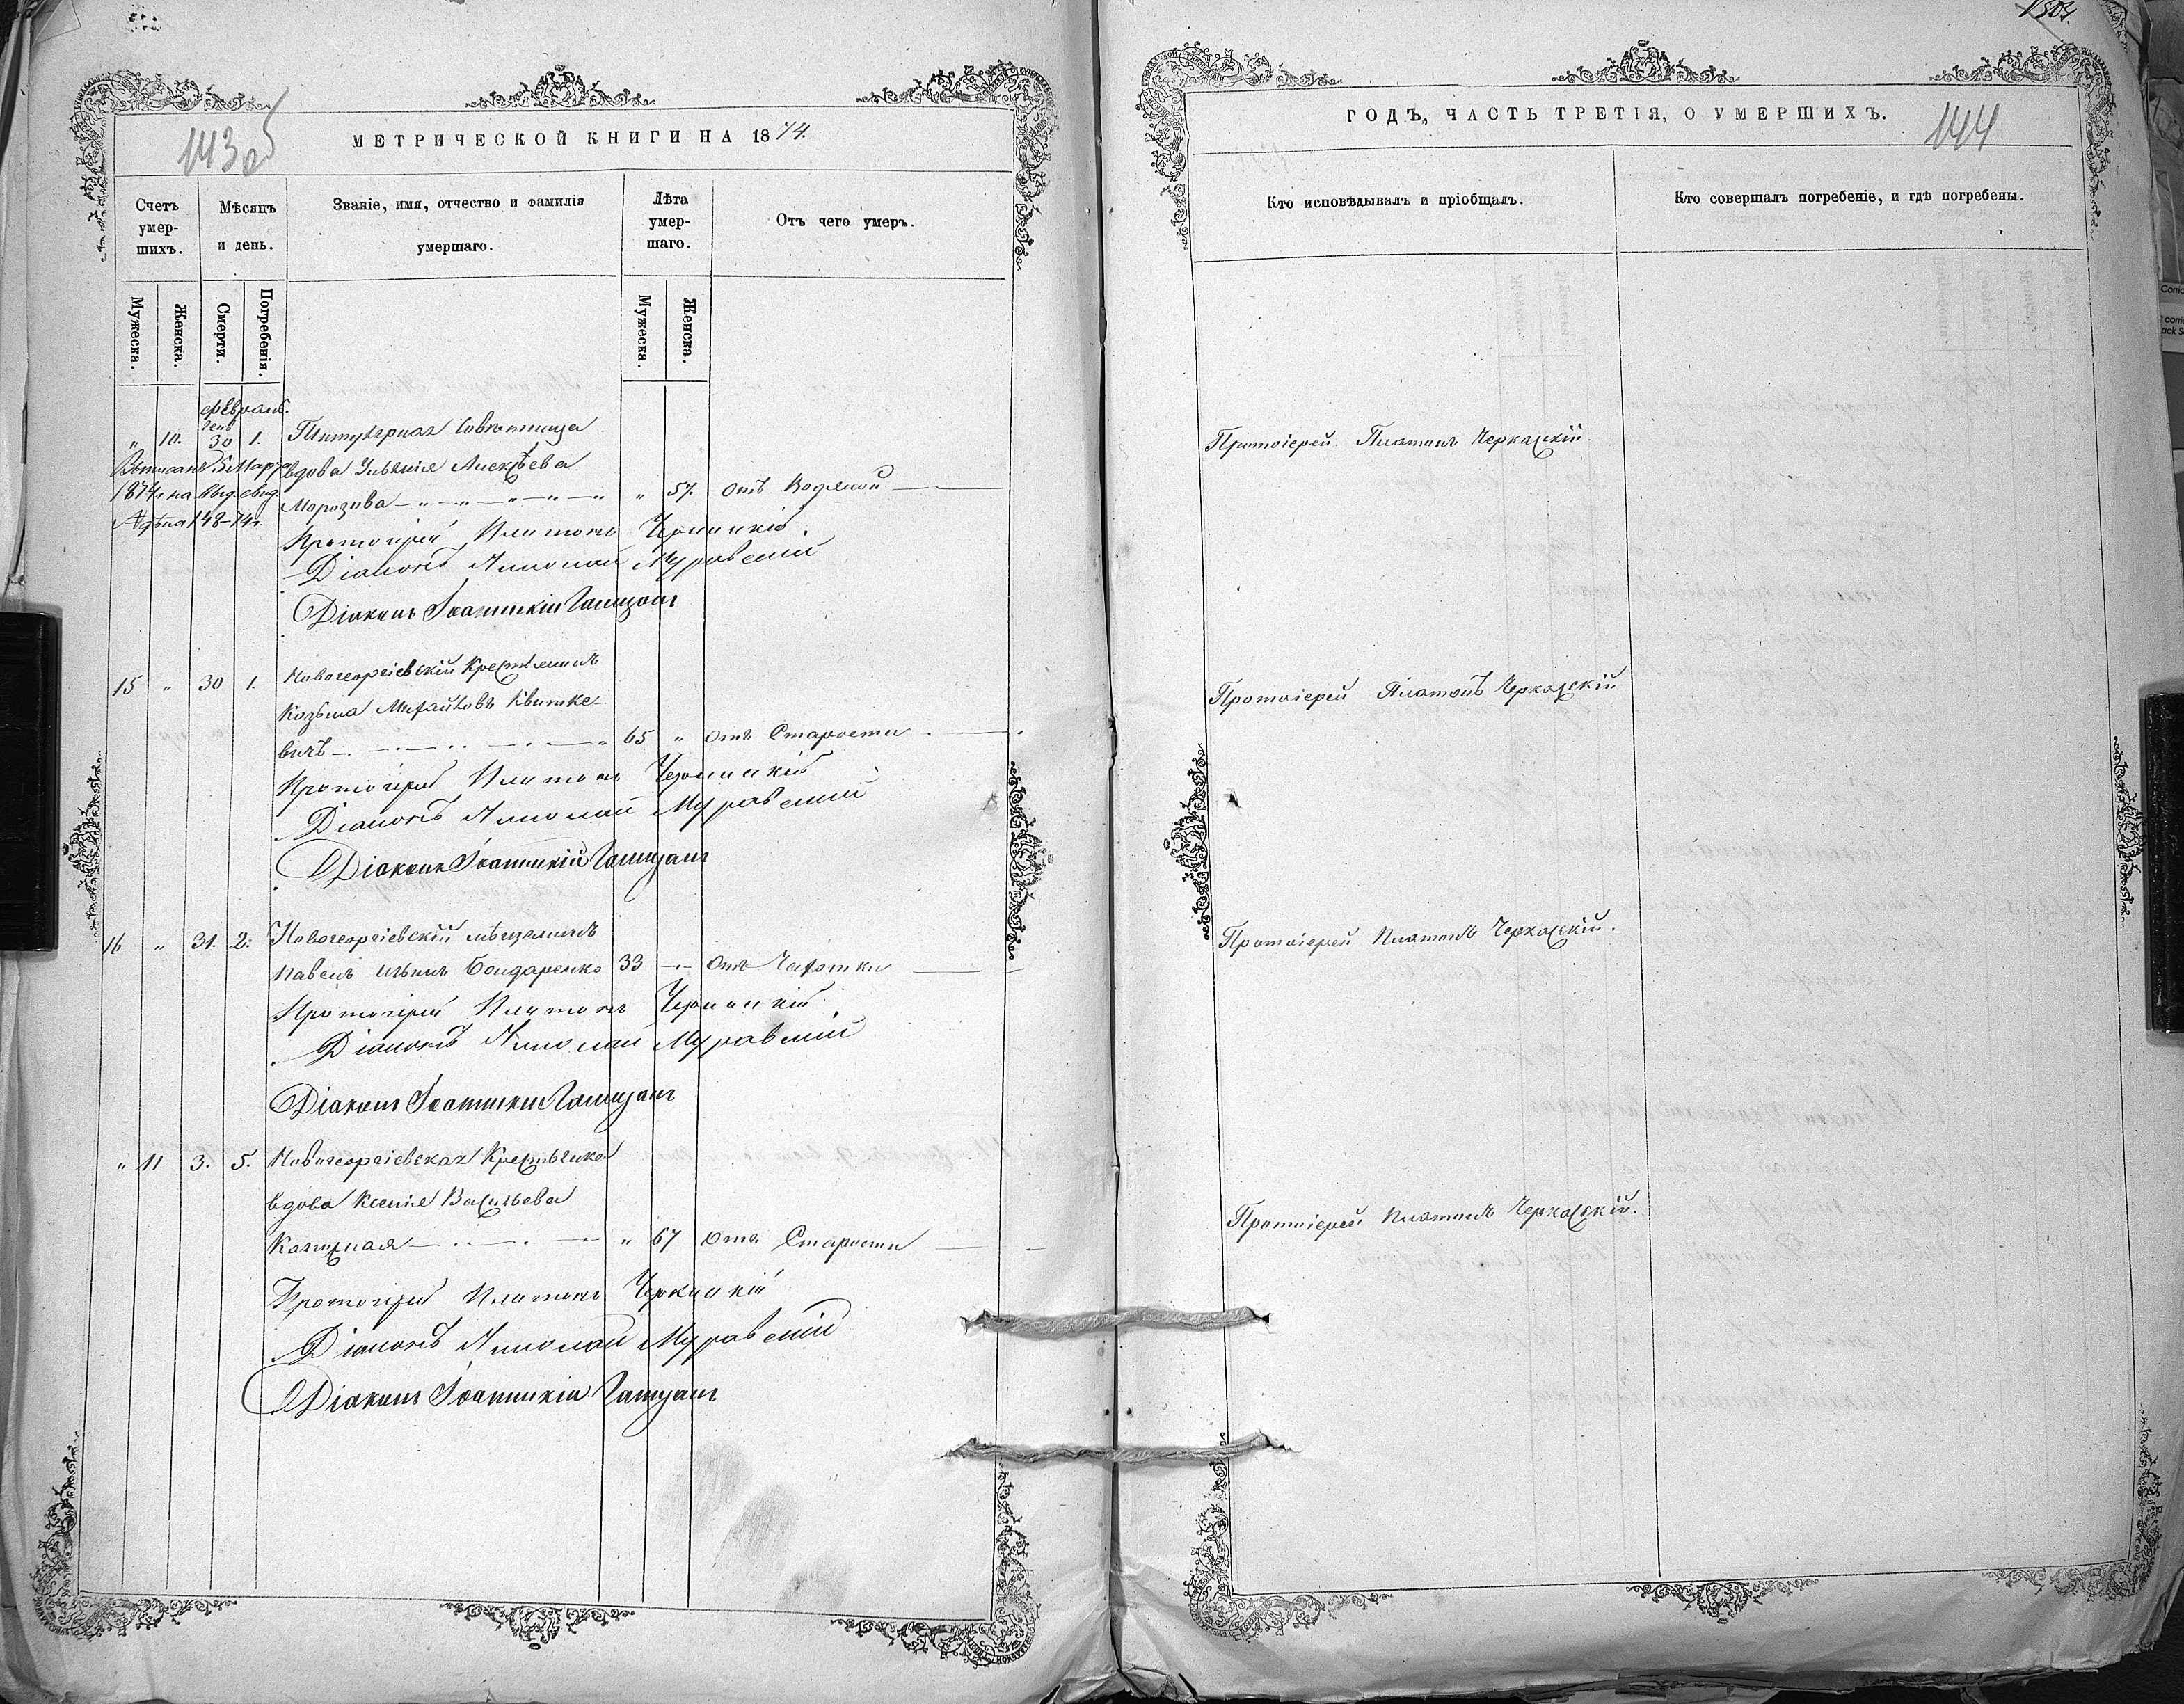 143 об
МЕТРИЧЕСКОЙ КНИГИ НА 1874.
Счетъ умер-шихъ.
Мѣсяцъ и день.
Званіе, имя, отчество и фамилія умершаго.
Лѣта умер-шаго.
Отъ чего умеръ.
Мужеска.
Женска.
Смерти.
Погребенія.
Мужеска.
Женска.
Февраль.
" 10. 30 1. Титулярная Совѣтница
вдова Ульянія Алексѣева
Морозова " 57. отъ Водяной
5 Марта
1874 г. на
148-74 г.
Протоіерей Платонъ Черкасскій.
Діаконъ Николай Муравскій
Діаконъ Іоанникій
15 " 30 1. Новогеоргіевскій Крестьянинъ
Козьма Михайловъ Квитке
вичъ 65 " Отъ Старости.
Протоіерей Платонъ Черкасскій
Діаконъ Николай Муравскій
Діаконъ Іоанникій
16 " 31. 2. Новогеоргіевскій мѣщанинъ
Павелъ Ильинъ Бондаренко 33 Отъ Чахотки
Протоіерей Платонъ Черкасскій
Діаконъ Николай Муравскій
Діаконъ Іоанникій
" 11 3. 5. Новогеоргіевская Крестьянка
вдова Ксенія Васильева
" 67 Отъ Старости
Протоіерей Платонъ Черкасскій
Діаконъ Николай Муравскій
Діаконъ Іоанникій
ГОДЪ, ЧАСТЬ ТРЕТІЯ, О УМЕРШИХЪ.
144
Кто исповѣдывалъ и пріобщалъ.
Кто совершалъ погребеніе, и гдѣ погребены.
Протоіерей Платонъ Черкасскій.
Протоіерей Платонъ Черкасскій
Протоіерей Платонъ Черкасскій.
Протоіерей Платонъ Черкасскій.